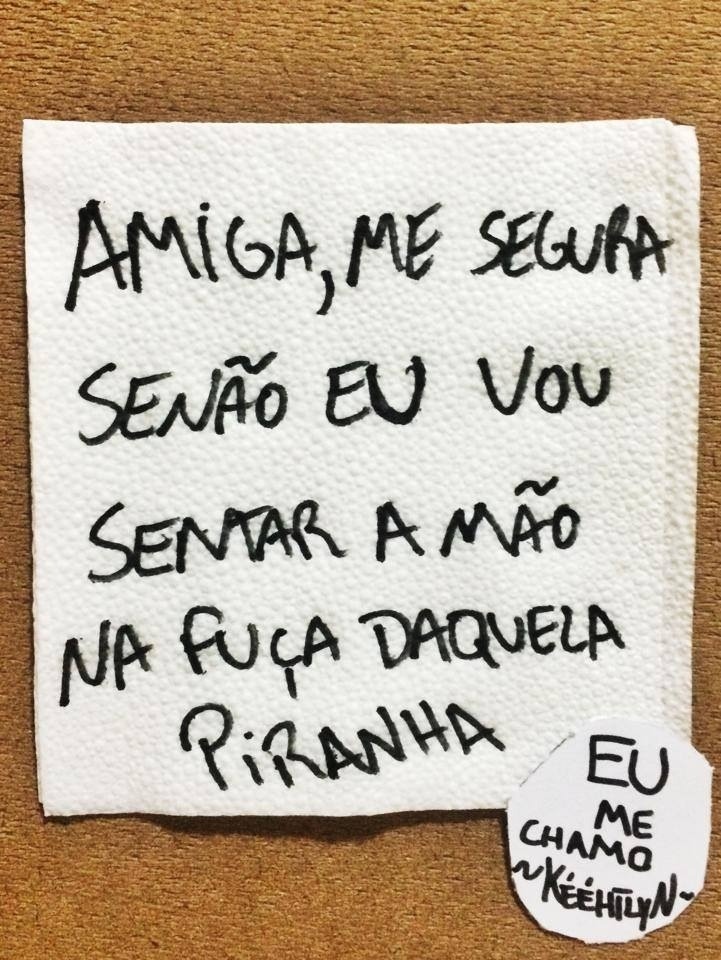 AMIGA, ME SEGURA
SENÃO EU VOU
SENTAR A MÃO
NA FUÇA DAQUELA
PIRANHA
EU
ME
CHAMO
~KÉÉHTLYN~